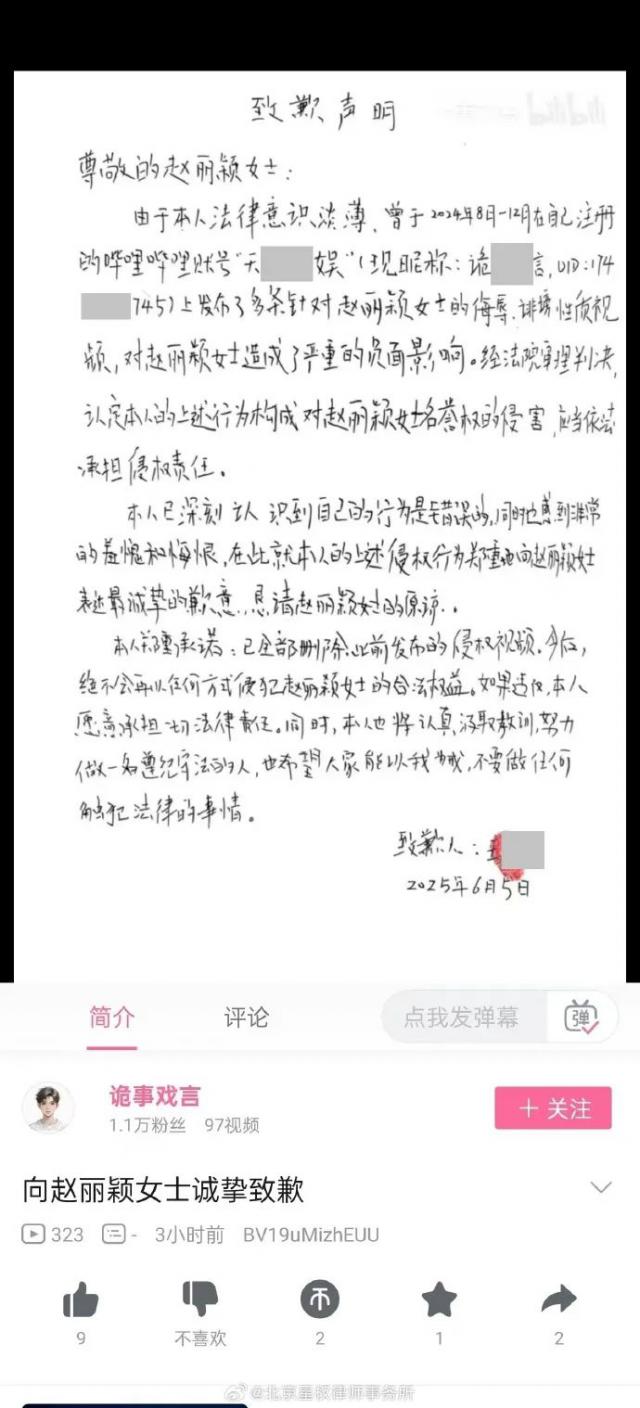 致歉声明
bilibili
尊敬的赵丽颖女士：
由于本人法律意识淡薄、曾于2024年8月-12月在自己注册
的哔哩哔哩账号“天 娱”（现昵称：诡 言，UID：174
745）上发布了多条针对赵丽颖女士的侮辱、诽谤性质视
频，对赵丽颖女士造成了严重的负面影响。经法院审理判决，
认定本人的上述行为构成对赵丽颖女士名誉权的侵害，应当依法
承担侵权责任。
本人已深刻认识到自己的行为是错误的，同时也感到非常
的羞愧和悔恨，在此就本人的上述侵权行为郑重地向赵丽颖女士
表达最诚挚的歉意，恳请赵丽颖女士的原谅..
本人郑重承诺：已全部删除此前发布的侵权视频。今后，
绝不会再以任何方式侵犯赵丽颖女士的合法权益。如果违反，本人
愿意承担一切法律责任。同时，本人也将认真汲取教训，努力
做一名遵纪守法的人，也希望大家能以我为戒，不要做任何
触犯法律的事情。
致歉人：
2025年6月5日
简介 评论 点我发弹幕 弹
诡事戏言
1.1万粉丝 97视频
+ 关注
向赵丽颖女士诚挚致歉
323 - 3小时前 BV19uMizhEUU
9 不喜欢 2 1 2
@北京星权律师事务所